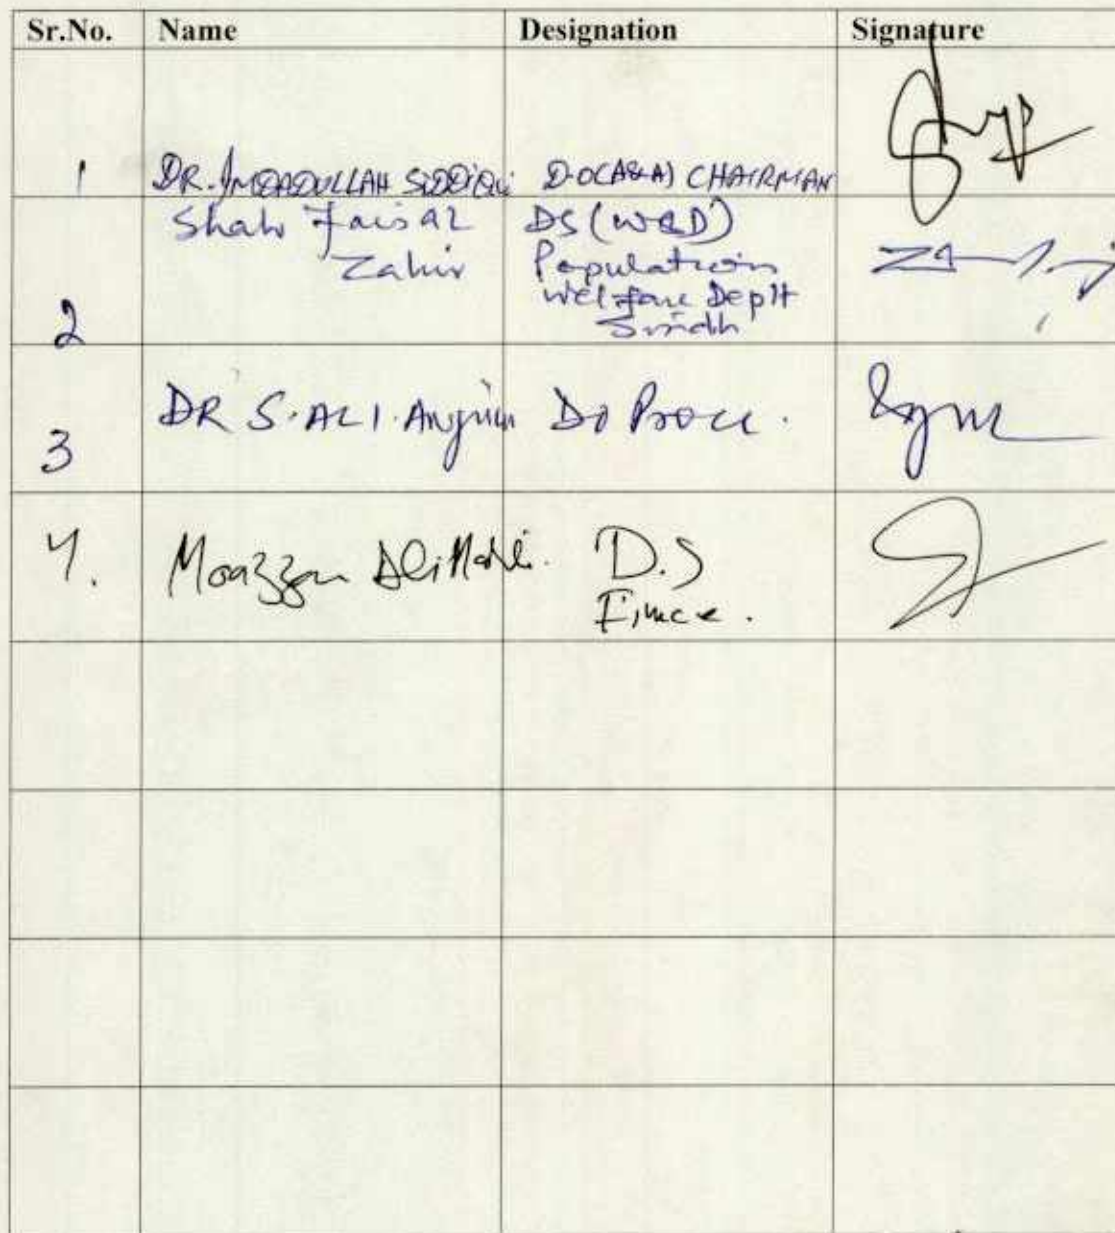 Sr.No. Name Designation Signature
1 DR. IMDADULLAH SIDDIQUI D.O(A&A) CHAIRMAN
Shah Faisal DS (W&D)
Zahir Population
Welfare Deptt
2 Sindh
3 DR S. ALI. Anjum DD Proc.
4. Moazzam Ali D.S